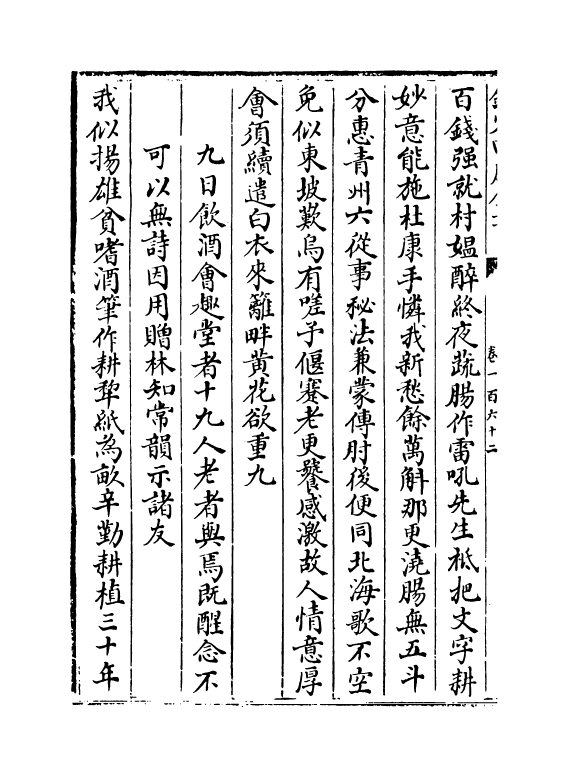 卷一百六十二
百錢强就村媪醉終夜蔬腸作雷吼先生柢把文字耕
妙意能施杜康手憐我新愁餘萬斛那更澆腸無五斗
分惠青州六從事秘法兼蒙傳肘後便同北海歌不空
免似東坡歎烏有嗟予偃蹇老更饕感激故人情意厚
會須續遣白衣來籬畔黄花欲重九
九日飲酒會趣堂者十九人老者與焉既醒念不
可以無詩因用贈林知常韻示諸友
我似揚雄貧嗜酒筆作耕犂紙為畝辛勤耕植三十年